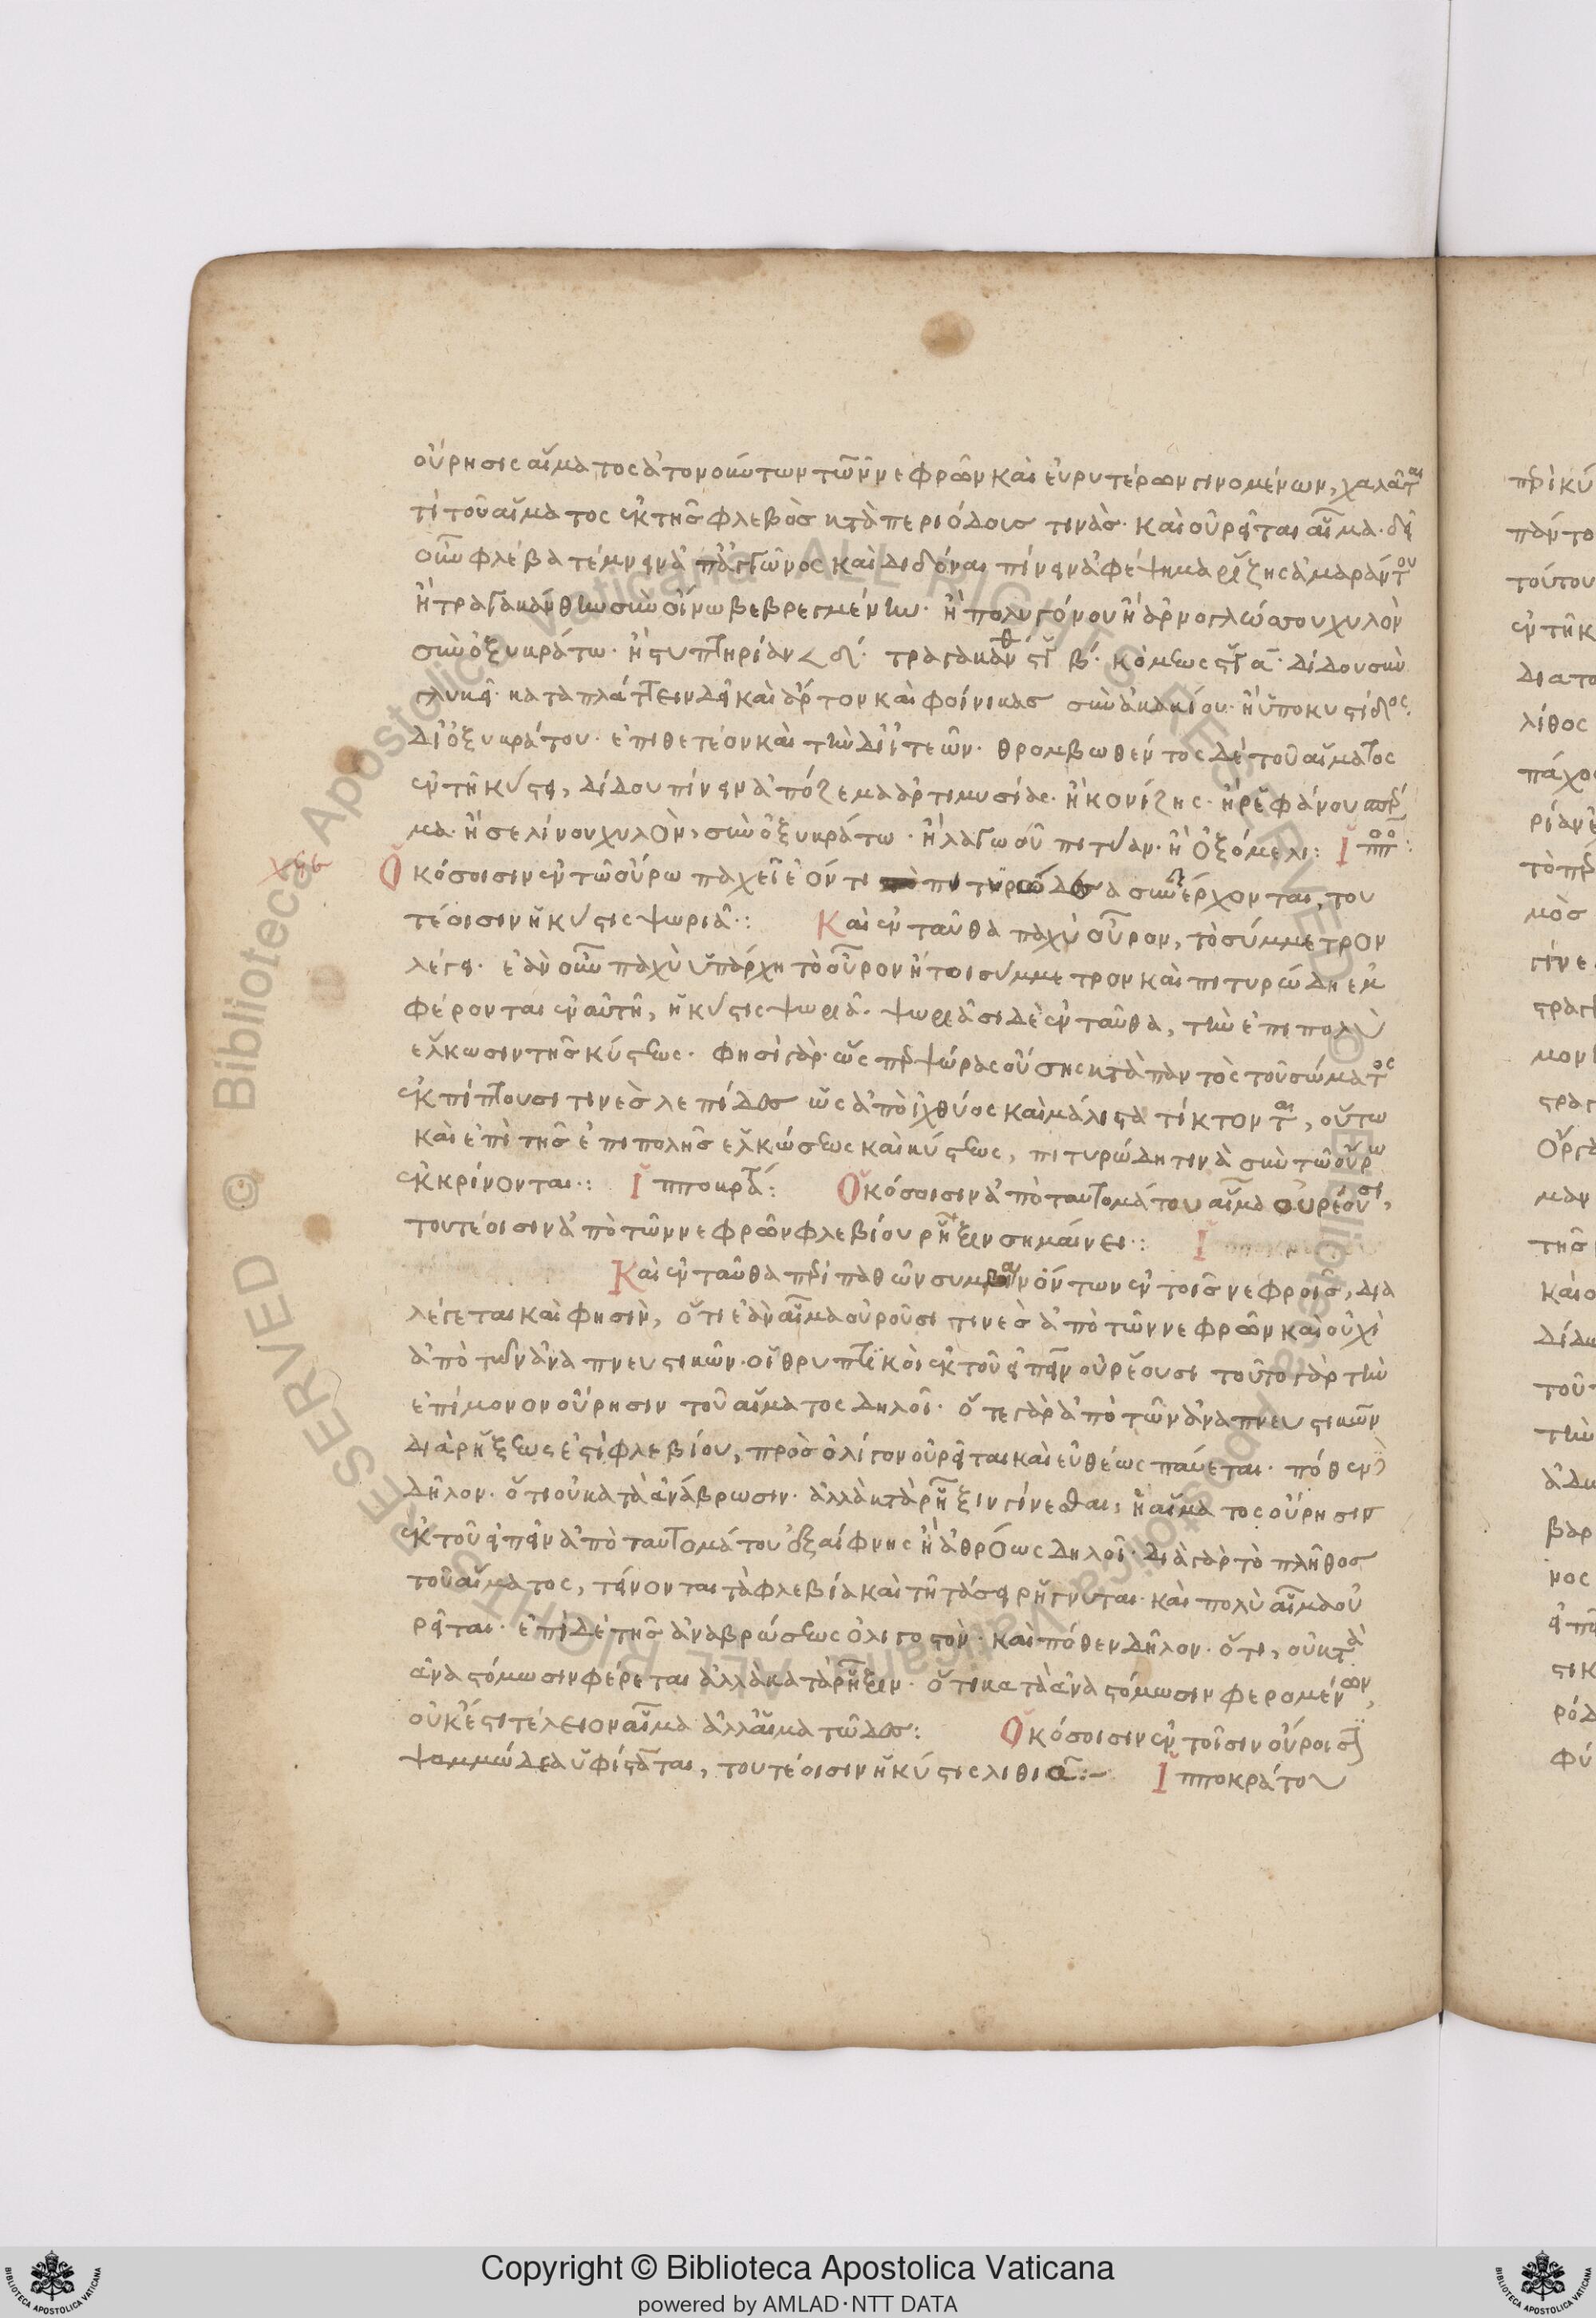 οὔρησις αἵματος ἀτονούντων τῶν νεφρῶν καὶ εὐρυτέρων γινομένων, χαλᾶται
τί τοῦ αἵματος ἐκ τῆς φλεβὸς κατὰ περιόδους τινάς· καὶ οὐρεῖται αἷμα· δεῖ
οὖν φλέβα τέμνειν ἀπ' ἀγκῶνος καὶ διδόναι πίνειν ἀφέψημα ῥίζης ἀμαράντου
ἢ τραγακάνθην σὺν οἴνω βεβρεγμένην· ἢ πολυγόνου ἢ ἀρνογλώσσου χυλὸν
σὺν ὀξυκράτω· ἢ στυπτηρίαν < δ΄· τραγακάνθ β΄· κόμεως α΄· δίδου σὺν
γλυκεῖ· καταπλάττειν δεῖ καὶ ἄρτον καὶ φοίνικας σὺν ἀκακίου· ἢ ὑποκυστίδος
δι' ὀξυκράτου· ἐπιθετέον καὶ τὴν δι' ἰτεῶν· θρομβωθέντος δὲ τοῦ αἵματος
ἐν τῆ κύστει, δίδου πίνειν ἀπόζεμα ἀρτεμισίας· ἢ κονίζης· ἢ ῥεφάνου σπέρ
μα· ἢ σελίνου χυλὸν, σὺν ὀξυκράτω· ἢ λαγωοῦ πιτύαν· ἢ ὀξόμελι: Ἱππο:
Ὁκόσοισιν ἐν τῶ οὔρω παχεῖ ἐόντι πιτυρώδεα συνεξέρχονται, του
τέοισιν ἡ κύστις ψωριᾶ: Καὶ ἐνταῦθα παχὺ οὖρον, τὸ σύμμετρον
λέγει· ἐὰν οὖν παχὺ ὑπάρχη τὸ οὖρον ἤτοι σύμμετρον καὶ πιτυρώδη ἐμ
φέρονται ἐν αὐτῆ, ἡ κύστις ψωριᾶ· ψωρίασι δὲ ἐνταῦθα, τὴν ἐπιπολὺ
ἕλκωσιν τῆς κύστεως· φησὶ γάρ· ὡς περ ψώρας οὔσης κατὰ παντὸς τοῦ σώματος
ἐκπίπτουσι τινὲς λεπίδες ὡς ἀπὸ ἰχθύος καὶ μάλιστα τίκτονται, οὕτω
καὶ ἐπὶ τῆς ἐπιπολῆς ἑλκώσεως καὶ κύστεως, πιτυρώδη τινὰ σὺν τῶ οὔρω
ἐκκρίνονται: Ἱπποκρατ: Ὁκόσοισιν ἀπὸ ταυτομάτου αἷμα οὐρέουσι,
τουτέοισιν ἀπὸ τῶν νεφρῶν φλεβίου ῥῆξιν σημαίνει:
Καὶ ἐνταῦθα περὶ παθῶν συμβαινόντων ἐν τοῖς νεφροῖς, δια
λέγεται καὶ φησὶν, ὅτι ἐὰν αἷμα οὐροῦσι τινὲς ἀπὸ τῶν νεφρῶν καὶ οὐχὶ
ἀπὸ τῶν ἀναπνευστικῶν· οἱ θρυπτικοὶ ἐκ τοῦ εἰπεῖν οὐρέουσι τοῦτο γὰρ τὴν
ἐπίμονον οὔρησιν τοῦ αἵματος δηλοῖ· ὅτε γὰρ ἀπὸ τῶν ἀναπνευστικῶν
διαρήξεως ἐστὶ φλεβίου, πρὸς ὀλίγον οὐρεῖται καὶ εὐθέως παύεται· πόθεν
δῆλον· ὅτι οὐ κατὰ ἀνάβρωσιν· ἀλλὰ κατὰ ῥῆξιν γίνεσθαι, ἡ αἵματος οὔρησιν
ἐκ τοῦ εἰπεῖν ἀπὸ ταυτομάτου ἐξαίφνης ἢ ἀθρόως δηλοῖ· διὰ γὰρ τὸ πλῆθος
τοῦ αἵματος, τείνονται τὰ φλεβία καὶ τῆ τάσει ῥήγνυται· καὶ πολὺ αἷμα οὐ
ρεῖται· ἐπὶ δὲ τῆς ἀναβρώσεως ὀλιγοστὸν· καὶ πόθεν δῆλον· ὅτι, οὐ κατὰ
ἀναστόμωσιν φέρεται ἀλλὰ κατὰ ῥῆξιν· ὅτι κατὰ ἀναστόμωσιν φερομένων,
οὐκ ἔστι τέλειον αἷμα ἀλλ' αἱματῶδες: Ὁκόσοισιν ἐν τοῖσιν οὔροισι
ψαμμώδεα ὑφίσταται, τουτέοισιν ἡ κύστις λιθιᾶ:– Ἱπποκράτου
Copyright © Biblioteca Apostolica Vaticana
powered by AMLAD·NTT DATA